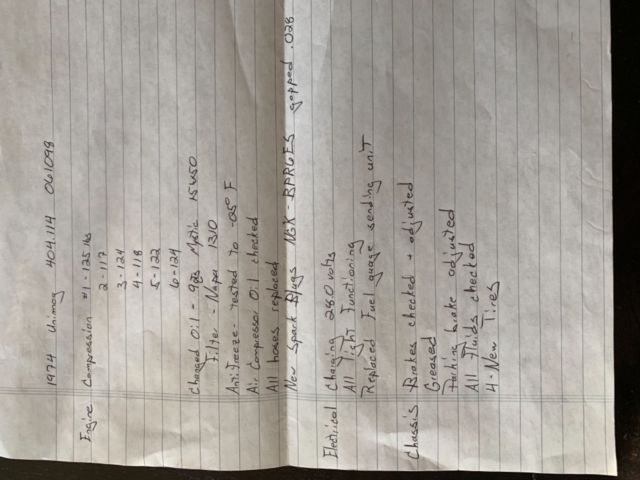 1974 Unimog 404.114 061098
Engine Compression #1 - 125 lbs
2 - 117
3 - 124
4 - 118
5 - 122
6 - 124
Changed Oil - 9qts Mystic 15W50
Filter - Napa 1310
Antifreeze - tested to -25° F
Air Compressor Oil checked
All hoses replaced
New Spark Plugs NGK - BPR6ES gapped .028
Electrical Charging 28.0 volts
All Light Functioning
Replaced Fuel guage sending unit
Chassis Brakes checked + adjusted
Greased
Parking brake adjusted
All Fluids checked
4 - New Tires